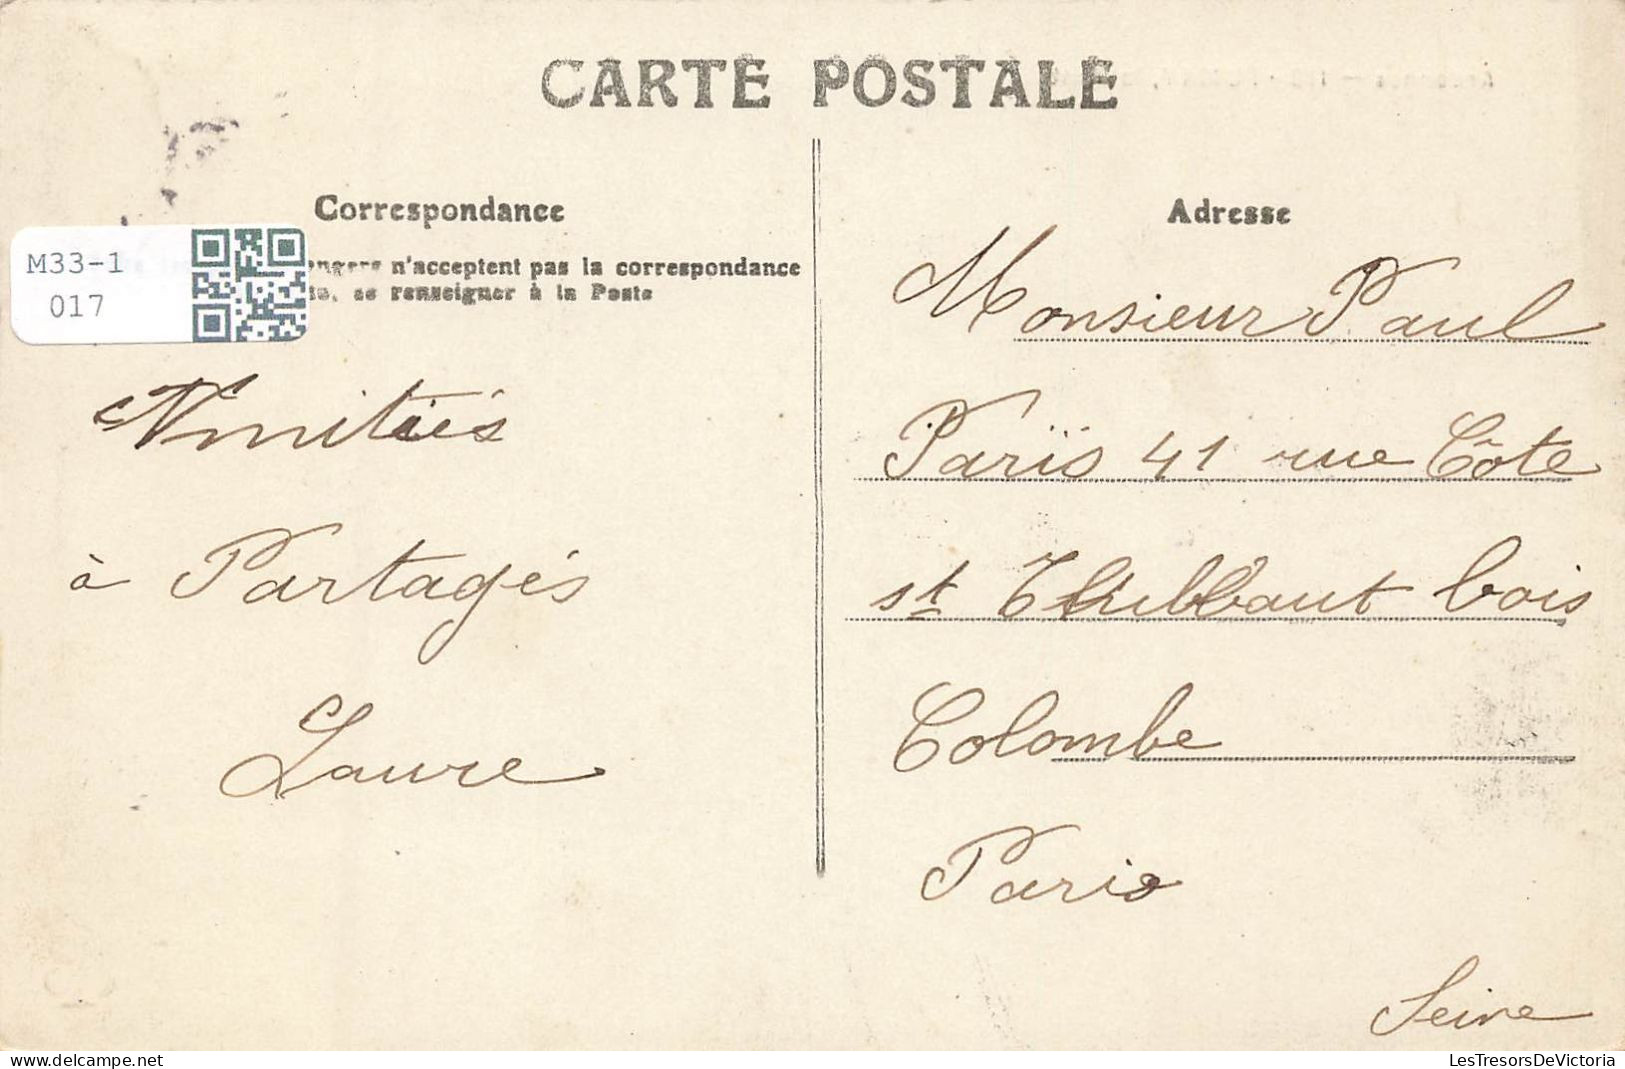 CARTE POSTALE
Correspondance
n'acceptent pas la correspondance
se renseigner à la Poste
M33-1
017
Amitiés
à Partagés
Laure
Adresse
Monsieur Paul
Parïs 41 rue Côte
st Thibbaut bois
Colombe
Paris
Seine
LesTresorsDeVictoria